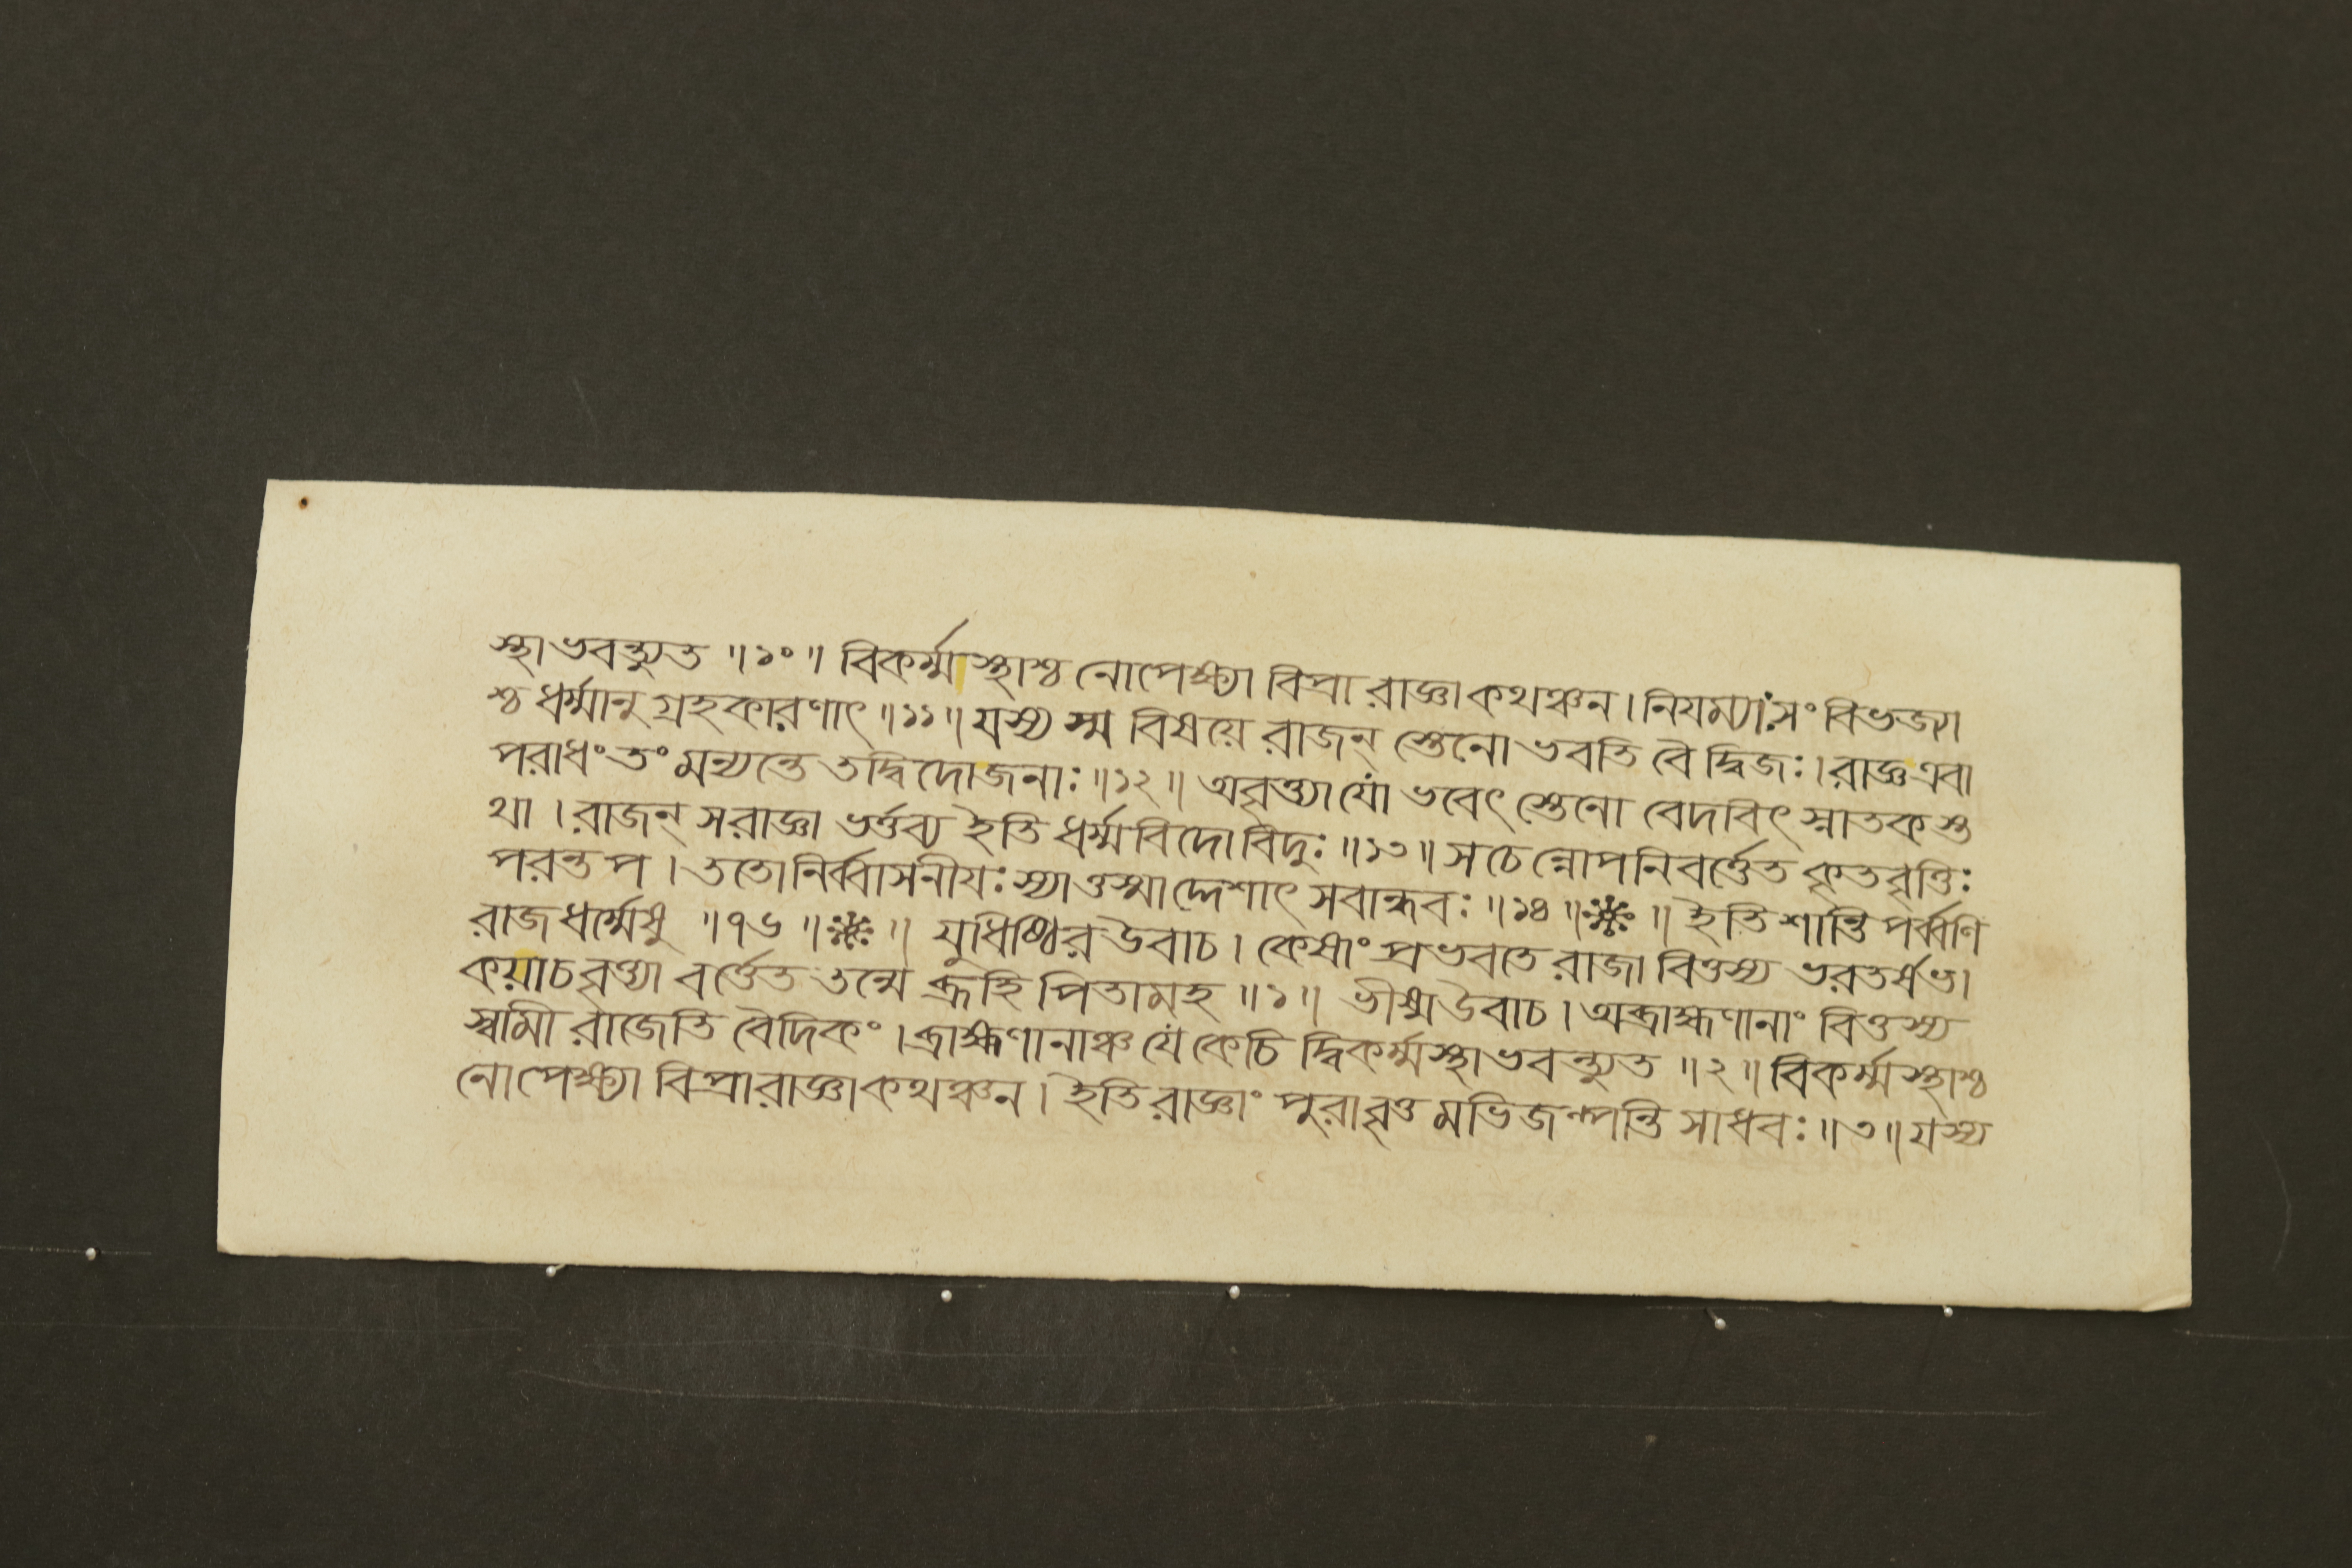 স্থাভবন্ত্যুত ॥১০॥ বিকর্ম্মাস্থাশ্চ নোপেক্ষ্যা বিপ্রা রাজ্ঞাকথঞ্চন। নিযম্যাঃসংবিভজ্যা
শ্চ ধর্ম্মানুগ্রহকারণাৎ ॥১১॥ যস্য স্ম বিষয়ে রাজন্ স্তেনো ভবতি বৈ দ্বিজঃ। রাজ্ঞএবা
পরাধংতং মন্যন্তে তদ্বিদোজনাঃ ॥১২॥ অবৃত্ত্যা যো ভবেৎ স্তেনো বেদবিৎ স্নাতকস্ত
থা । রাজন্ সরাজ্ঞা ভর্ত্তব্য ইতি ধর্ম্মবিদোবিদুঃ ॥১৩॥ সচেন্নোপনিবর্ত্তেত কৃতবৃত্তিঃ
পরন্তপ । ততোনির্ব্বাসনীযঃ স্যাত্তস্মাদ্দেশাৎ সবান্ধবঃ ॥১৪॥ ❈ ॥ ইতি শান্তিপর্ব্বণি
রাজধর্ম্মেষু ॥৭৬॥ ❈ ॥ যুধিষ্ঠির উবাচ। কেষাং প্রভবতে রাজা বিত্তস্য ভরতর্ষভ।
কয়াচবৃত্ত্যা বর্ত্তেত তন্মে ব্রূহি পিতামহ ॥১॥ ভীষ্মউবাচ। অব্রাহ্মণানাং বিত্তস্য
স্বামী রাজেতি বৈদিকং । ব্রাহ্মণানাঞ্চ যে কেচি দ্বিকর্ম্মস্থাভবন্ত্যুত ॥২॥ বিকর্ম্মস্থাশ্চ
নোপেক্ষ্যা বিপ্রারাজ্ঞাকথঞ্চন। ইতিরাজ্ঞাং পুরাবৃত্ত মভিজল্পন্তি সাধবঃ ॥৩॥ যস্য